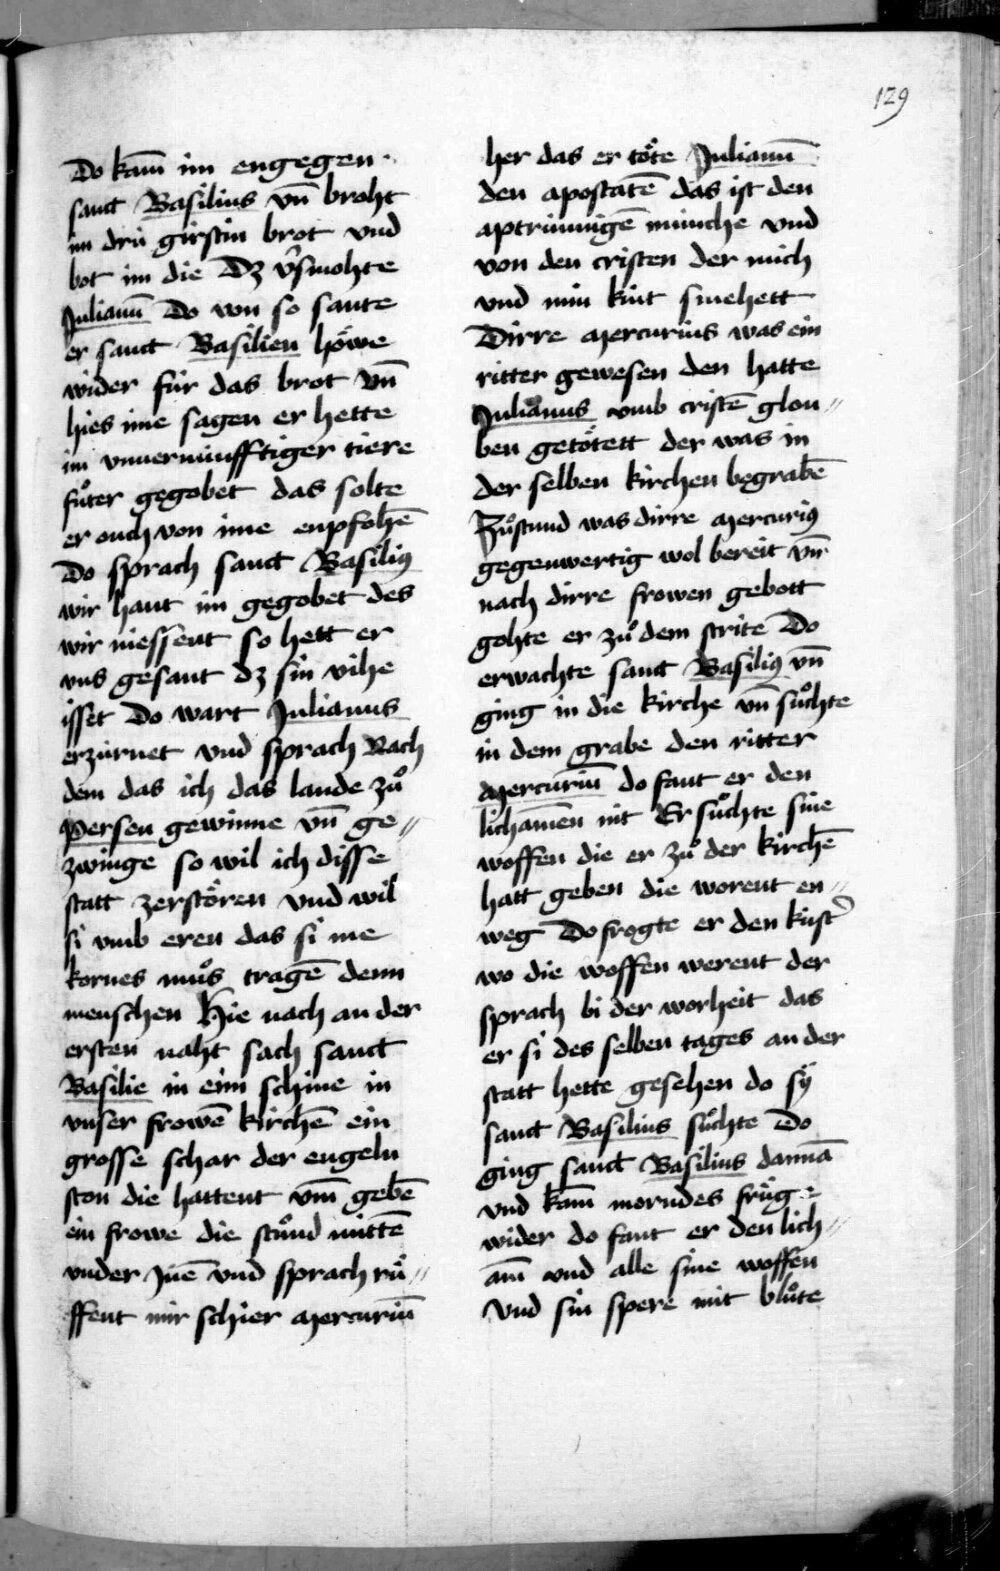 129
Do kam̄ im engegen
sanct Basilius vn̄ broht
im drú girstin brot vnd
bot im die Dz v̾smohte
Julianū Do von so sante
er sanct Basilien hówe
wider fúr das brot vn̄
hies ime sagen er hette
im vnuernúnfftiger tiere
fuͦter gegobet das solte
er ouch von ime enpfohē
Do sprach sanct Basiliꝰ
wir hant im gegobet des
wir niessent so hett er
vns gesant dz sin vihe
isset Do wart Julianus
erzúrnet vnd sprach Nach
dem das ich das lande zuͦ
Persen gewinne vn̄ ge⸗
zwinge so wil ich disse
statt zerstören vnd wil
si vmb eren das si me
kornes muͦs tragē denn
menschen Hie nach an der
ersten naht sach sanct
Basilie in eim schine in
vnser frowē kirchē ein
grosse schar der engeln
ston die hattent vm̄ gebē
ein frowe die stuͦnd mittē
vnder Jnē vnd sprach ruͤ⸗
ffent mir schier mercuriū
her das er töte Julianū
den apostatē das ist den
aptrúnnigē múnche vnd
von den cristen der mich
vnd min kint smehett
Dirre mercurius was ein
ritter gewesen den hatte
Julianus vmb cristē glou⸗
ben getötett der was in
der selben kirchen begrabē
Zuͦstund was dirre mercuriꝰ
gegenwertig wol bereit vn̄
nach dirre frowen gebott
gohte er zuͦ dem strite Do
erwachte sanct Basiliꝰ vn̄
ging in die kirche vn̄ suͦchte
in dem grabe den ritter
mercuriū do fant er den
lichamen nit Er suͦchte sine
woffen die er zuͦ der kirchē
hatt geben die worent en⸗
weg Do frogte er den kúst̾
wo die woffen werent der
sprach bi der worheit das
er si des selben tages an der
statt hette gesehen do sÿ
sanct Basilius suͦchte Do
ging sanct Basilius dannā
vnd kam̄ morndes frúge
wider do fant er den lich⸗
am̄ vnd alle sine woffen
vnd sin spere mit bluͦte